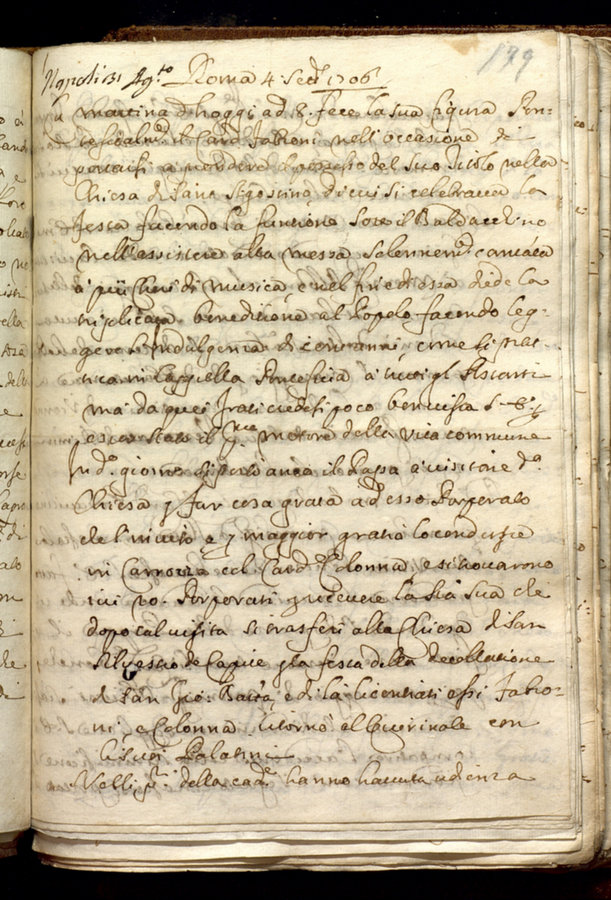 179
Napoli 31 Ag.to Roma 4 Sett. 1706
La mattina d'hoggi ad 8. fece la sua figura Pon-
tificalm.te il Card. Fabroni nell'occasione di
portarsi a prendere il possesso del suo Titolo nella
Chiesa di Sant'Agostino, di cui si celebrava la
festa facendo la funtione sotto il Baldacchino
nell'assistere alla messa solennem.te cantata
a più Chori di musica, e nel fine di essa diede la
triplicata beneditione al Popolo facendo leg-
gere l'Indulgenza di cent'anni, come si prat-
tica in Cappella Pontificia à tutti gl'Astanti
ma da quei frati credesi poco ben vista S.
esser stato il p.mo motore della vita commune
In d.o giorno si portò anco il Papa a visitare d.a
Chiesa p far cosa grata ad esso Porporato
che l'invitò e p maggior gratia lo condusse
in Carrozza col Card. Colonna, e si trovarono
ivi Porporati p ricevere la S.tà Sua che
dopo tal visita si trasferì alla Chiesa di San
Silvestro de Capite p la festa della decollatione
di San Gio: Batta, e di là licentiati essi Fabro-
ni, e Colonna ritornò al Quirinale con
li suoi Palatini
Nelli g.ni della cad.te hanno havuta udienza